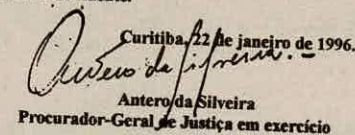 Curitiba, 22 de janeiro de 1996.
Antero da Silveira
Antero da Silveira
Procurador-Geral de Justiça em exercício